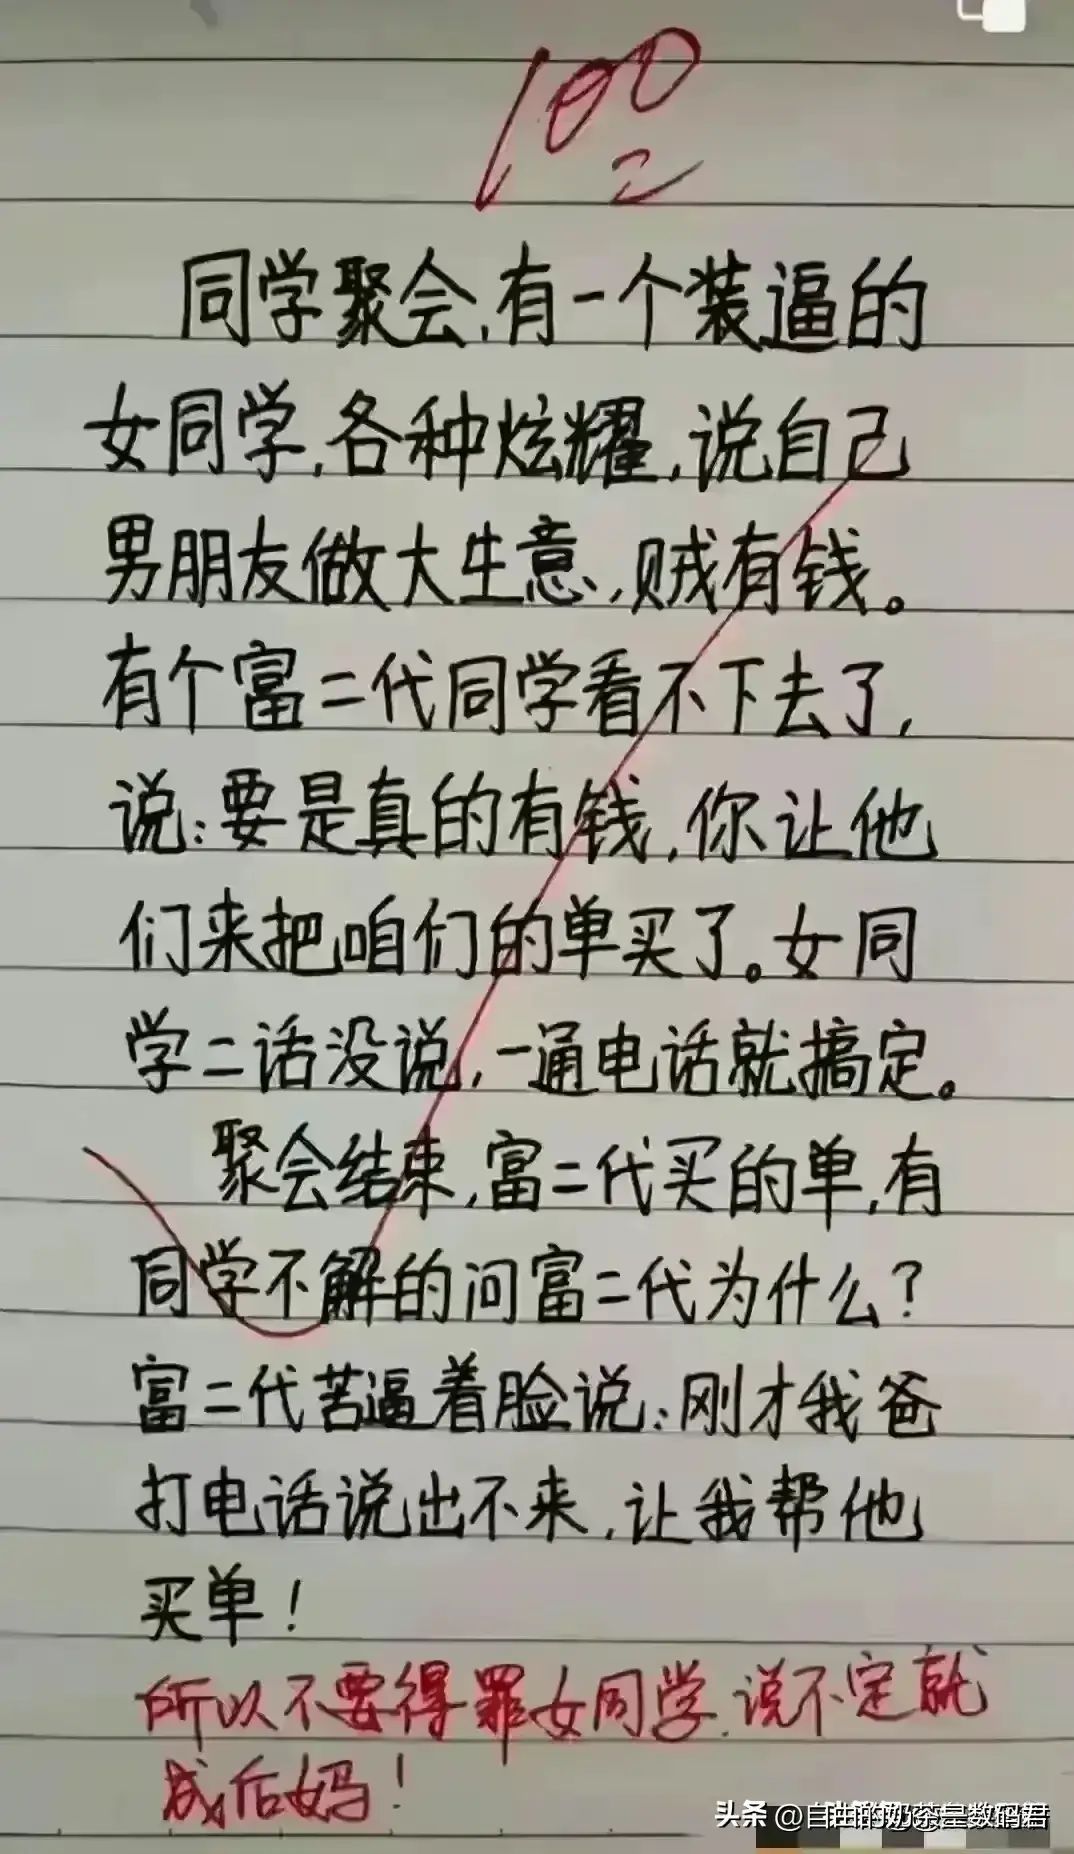 100
同学聚会,有一个装逼的
女同学,各种炫耀,说自己
男朋友做大生意,贼有钱。
有个富二代同学看不下去了,
说:要是真的有钱,你让他
们来把咱们的单买了。女同
学二话没说,一通电话就搞定。
聚会结束,富二代买的单,有
同学不解的问富二代为什么?
富二代苦逼着脸说:刚才我爸
打电话说出不来,让我帮他
买单!
所以不要得罪女同学,说不定就
成后妈!
头条 @自由的奶茶皇数码君